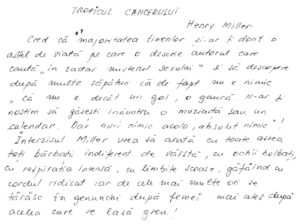 TROPICUL CANCERULUI
Henry Miller
Cred că majoritatea tinerilor și-ar dori o
altfel de viață pe care o descrie autorul care
caută „în zadar misterul sexului” și să descopere
după multe săpături că de fapt nu e nimic
„că nu e decât un gol, o gaură n-ar fi
nostim să găsești înăuntru o muzicuță sau un
calendar. Dar nimic acolo, absolut nimic”!
Interzisul Miller vrea să arate cu toate astea
toți bărbații indiferent de vârstă, cu ochii holbați,
cu respirația intensă, cu limbile scoase, gâfâind cu
cordul ridicat iar de cele mai multe ori se
târăsc în genunchi după femei mai ales după
acelea care se lasă greu!